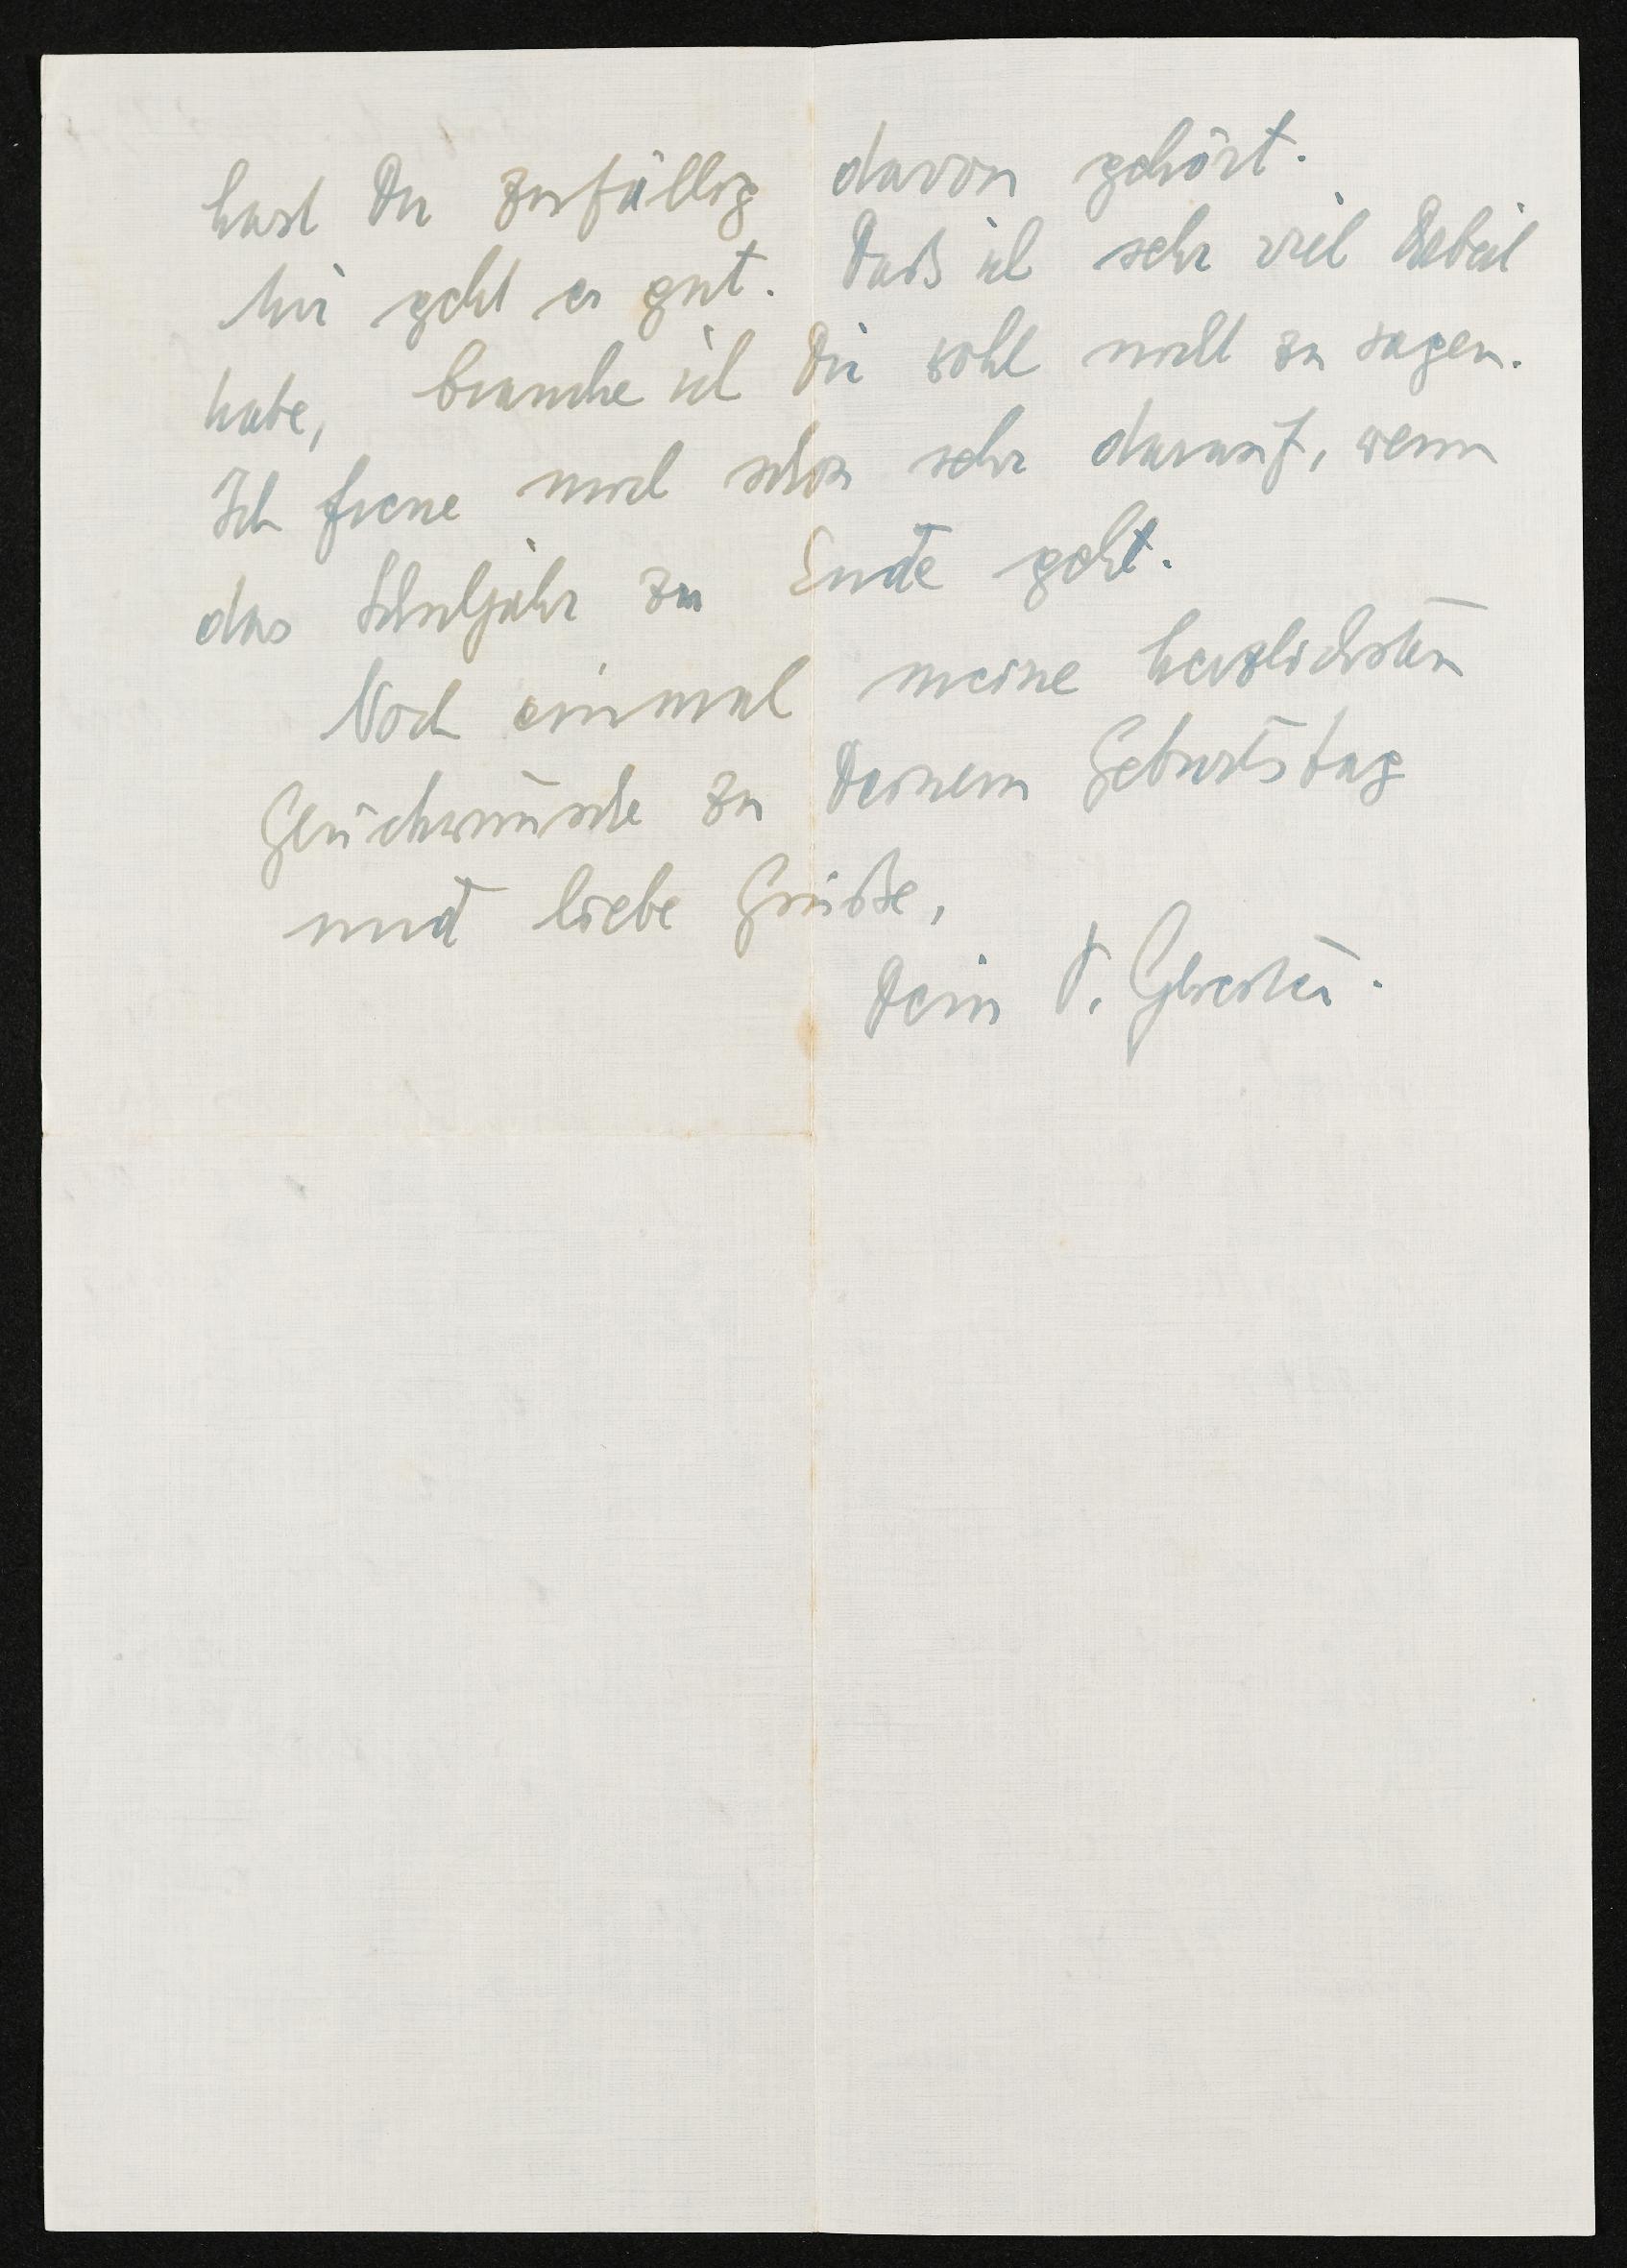 hast Du zufällig davon gehört.
Mir geht es gut. Daß ich sehr viel Arbeit
habe, brauche ich Dir wohl nicht zu sagen.
Ich freue mich schon sehr darauf, wenn
das Schuljahr zu Ende geht.
Noch einmal meine herzlichsten
Glückwünsche zu Deinem Geburtstag
und liebe Grüße,
Dein P.